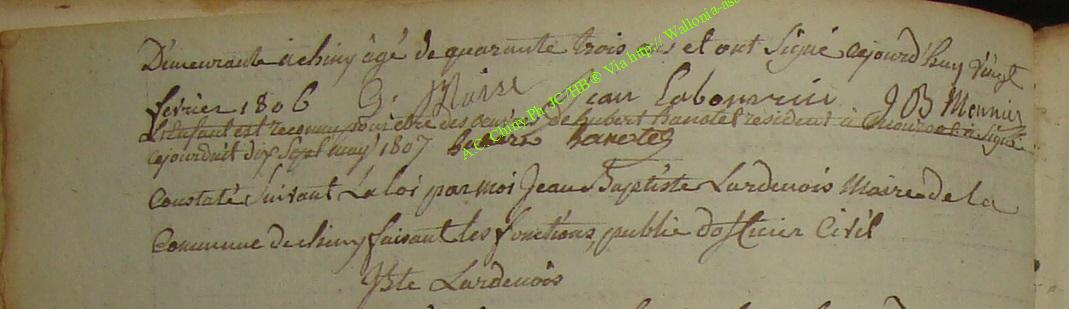 Demeurante a chiny âgé de quarante trois ans et ont Signé cejourd'huy vingt
fevrier 1806 Jean J B Monnier
L'Enfant est reconnu pour etre des de hubert hanotel resident à et a Signé
cejourduit dix Sept may 1807
Constaté Suivant La loi par moi Jean Baptiste Lardenois Maire de la
Commune de chiny faisant les fonctions, public d'officier Civil
JBte Lardenois
A.C. Chiny Ph JC/HB® Via http://Wallonia-as